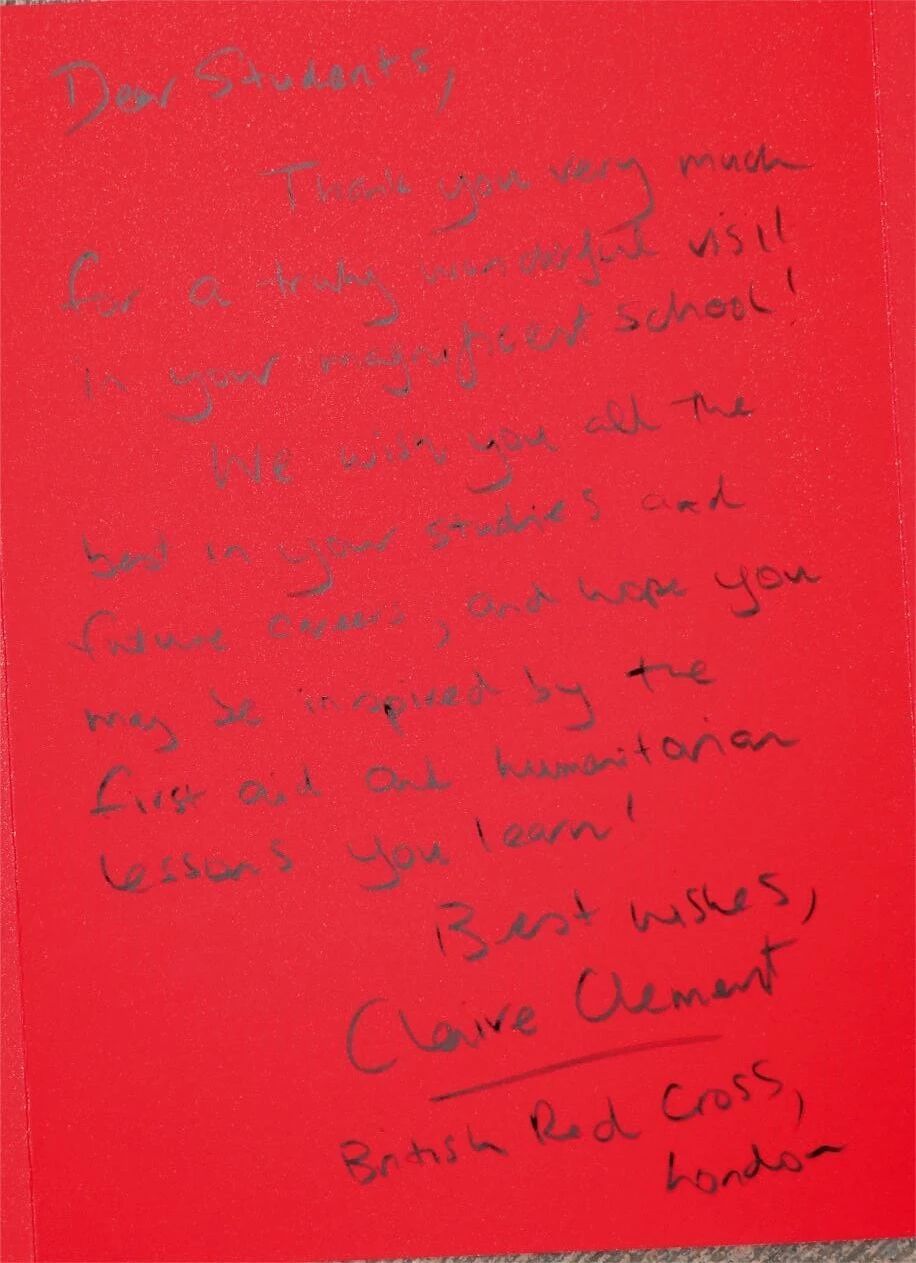 Dear Students,
Thank you very much
for a truly wonderful visit
in your magnificent school!
We wish you all the
best in your studies and
future careers, and hope you
may be inspired by the
first aid and humanitarian
lessons you learn!
Best wishes,
Claire Clement
British Red Cross,
London